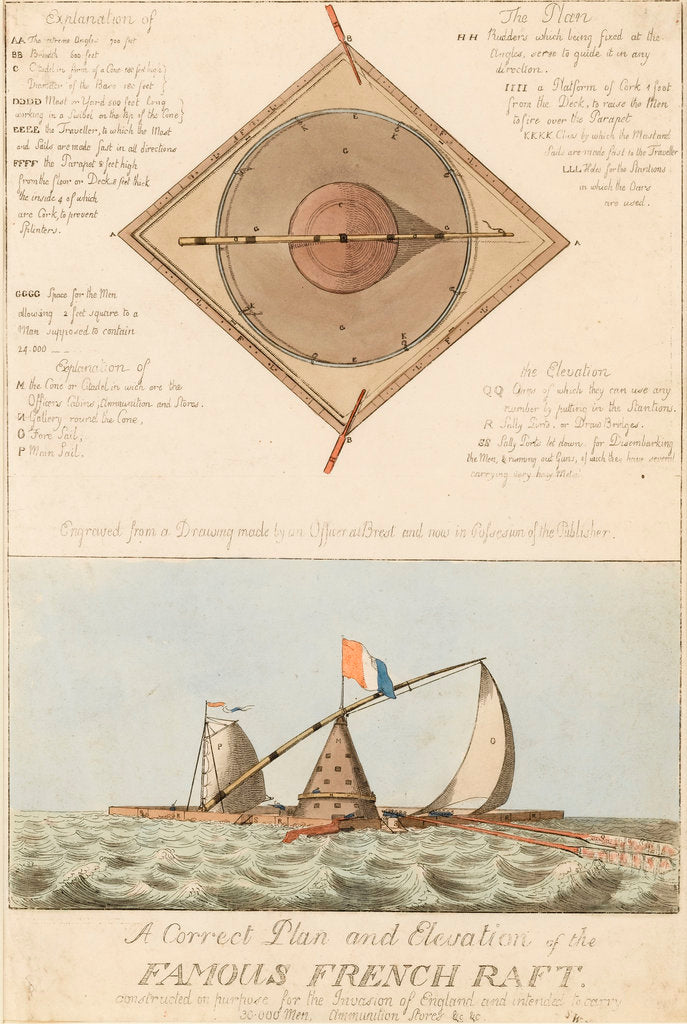 Explanation of
AA The extreme Angles 700 feet
BB Breadth 600 feet
C Citadel in form of a Cone 180 feet high }
Diameter of the Base 180 feet }
DDDD Mast or Yard 500 feet long }
working in a Swivel on the top of the Cone }
EEEE the Traveller, to which the Mast
and Sails are made fast in all directions
FFFF the Parapet 8 feet high
from the floor or Deck 8 feet thick
the inside 4 of which
are Cork, to prevent
Splinters.
GGGG Space for the Men
allowing 2 feet square to a
Man supposed to contain
24.000
The Plan
HH Rudders which being fixed at the
Angles, serve to guide it in any
direction.
IIII a Platform of Cork 4 foot
from the Deck, to raise the Men
to fire over the Parapet
KKKK Cleas by which the Mast and
Sails are made fast to the Traveller
LLL Holes for the Stantions
in which the Oars
are used.
Explanation of
M the Cone or Citadel in wich are the
Officers Cabins, Ammunition and Stores.
N Gallery round the Cone,
O Fore Sail,
P Main Sail.
the Elevation
QQ Oars of which they can use any
number by putting in the Stantions.
R Sally Ports or Draw Bridges.
SS Sally Ports let down for Disembarking
the Men, & running out Guns, of wich they have several
carrying very heavy Metal
Engraved from a Drawing made by an Officer at Brest and now in Possesion of the Publisher.
A Correct Plan and Elevation of the
FAMOUS FRENCH RAFT.
constructed on purpose for the Invasion of England and intended to carry
30.000 Men, Ammunition Stores &c &c.